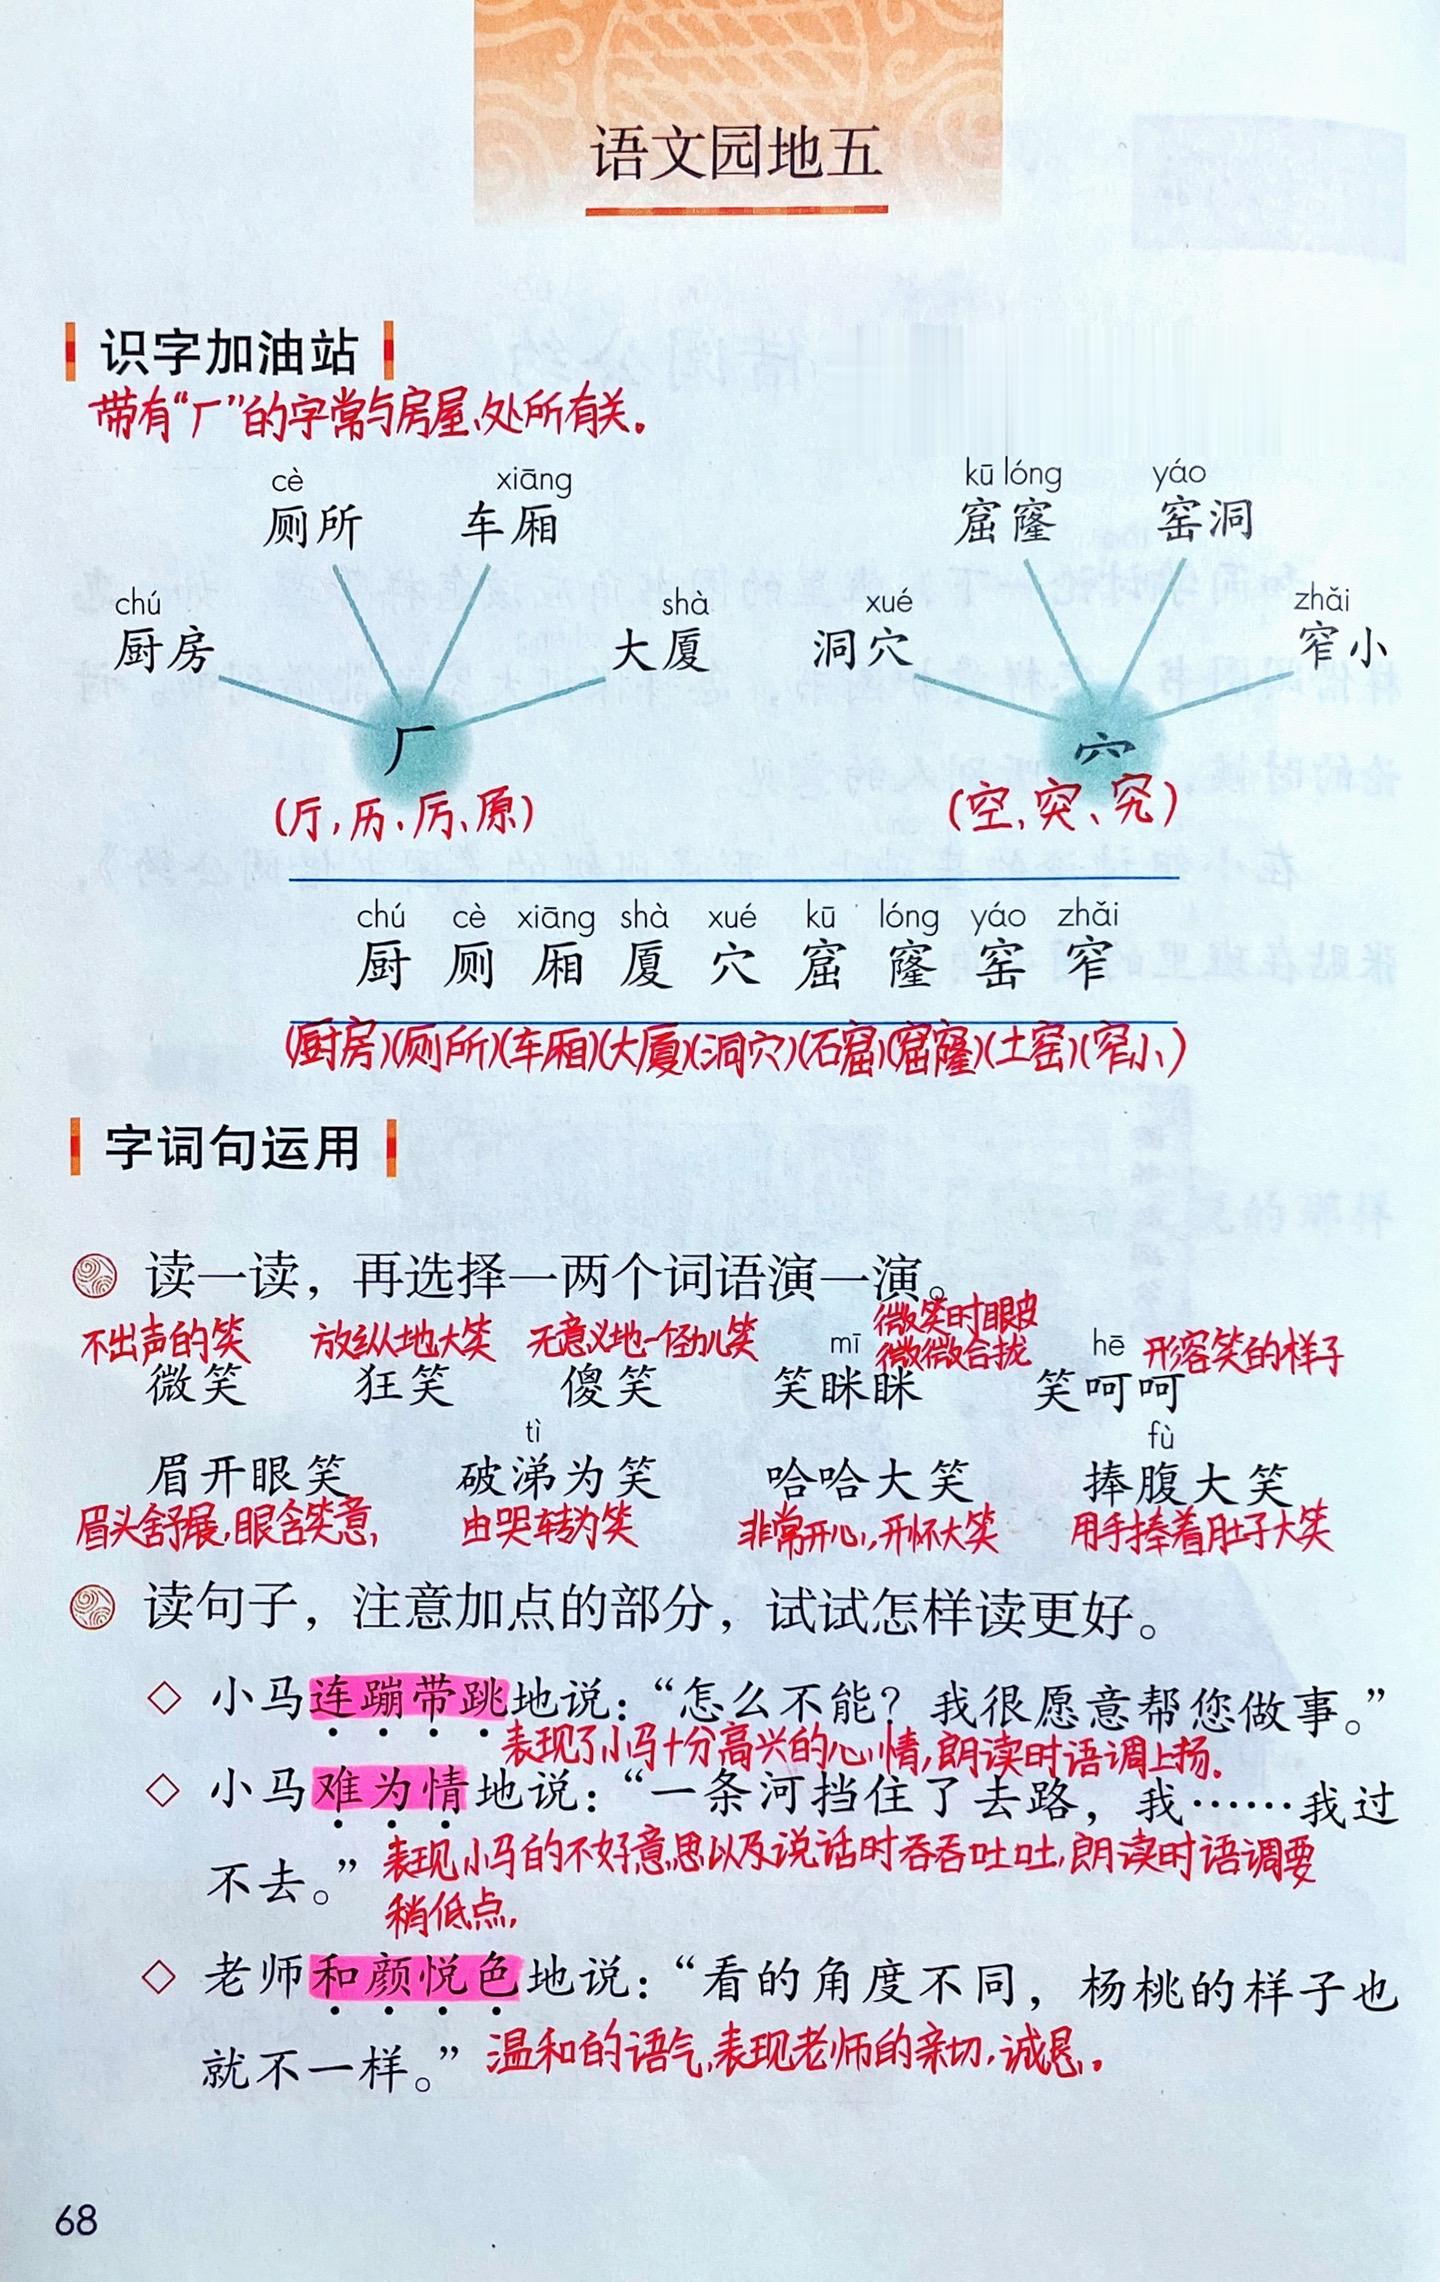 语文园地五
识字加油站
带有“厂”的字常与房屋、处所有关。
cè xiāng kū lóng yáo
厕所 车厢 窟窿 窑洞
chú shà xué zhǎi
厨房 大厦 洞穴 窄小
厂 穴
(厅,历、厉、原) (空、突、究)
chú cè xiāng shà xué kū lóng yáo zhǎi
厨 厕 厢 厦 穴 窟 窿 窑 窄
(厨房)(厕所)(车厢)(大厦)(洞穴)(石窟)(窟窿)(土窑)(窄小)
字词句运用
读一读，再选择一两个词语演一演。
不出声的笑 放纵地大笑 无意义地一个劲儿笑 mī 微笑时眼皮微微合拢 hē 形容笑的样子
微笑 狂笑 傻笑 笑眯眯 笑呵呵
tì fù
眉开眼笑 破涕为笑 哈哈大笑 捧腹大笑
眉头舒展,眼含笑意, 由哭转为笑 非常开心,开怀大笑 用手捧着肚子大笑
读句子，注意加点的部分，试试怎样读更好。
◇ 小马连蹦带跳地说：“怎么不能？我很愿意帮您做事。”
表现了小马十分高兴的心情,朗读时语调上扬。
◇ 小马难为情地说：“一条河挡住了去路，我……我过
不去。” 表现小马的不好意思以及说话时吞吞吐吐,朗读时语调要
稍低点,
◇ 老师和颜悦色地说：“看的角度不同，杨桃的样子也
就不一样。” 温和的语气,表现老师的亲切,诚恳。
68